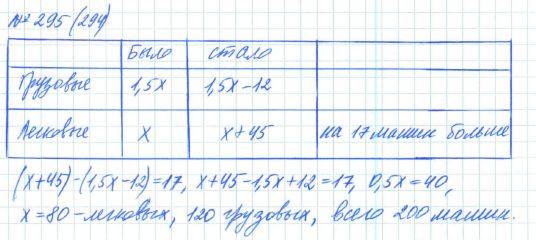 № 295 (294)
было стало
Грузовые 1,5x 1,5x-12
Легковые x x+45 на 17 машин больше
(x+45)-(1,5x-12)=17, x+45-1,5x+12=17, 0,5x=40,
x=80-легковых, 120 грузовых, всего 200 машин.